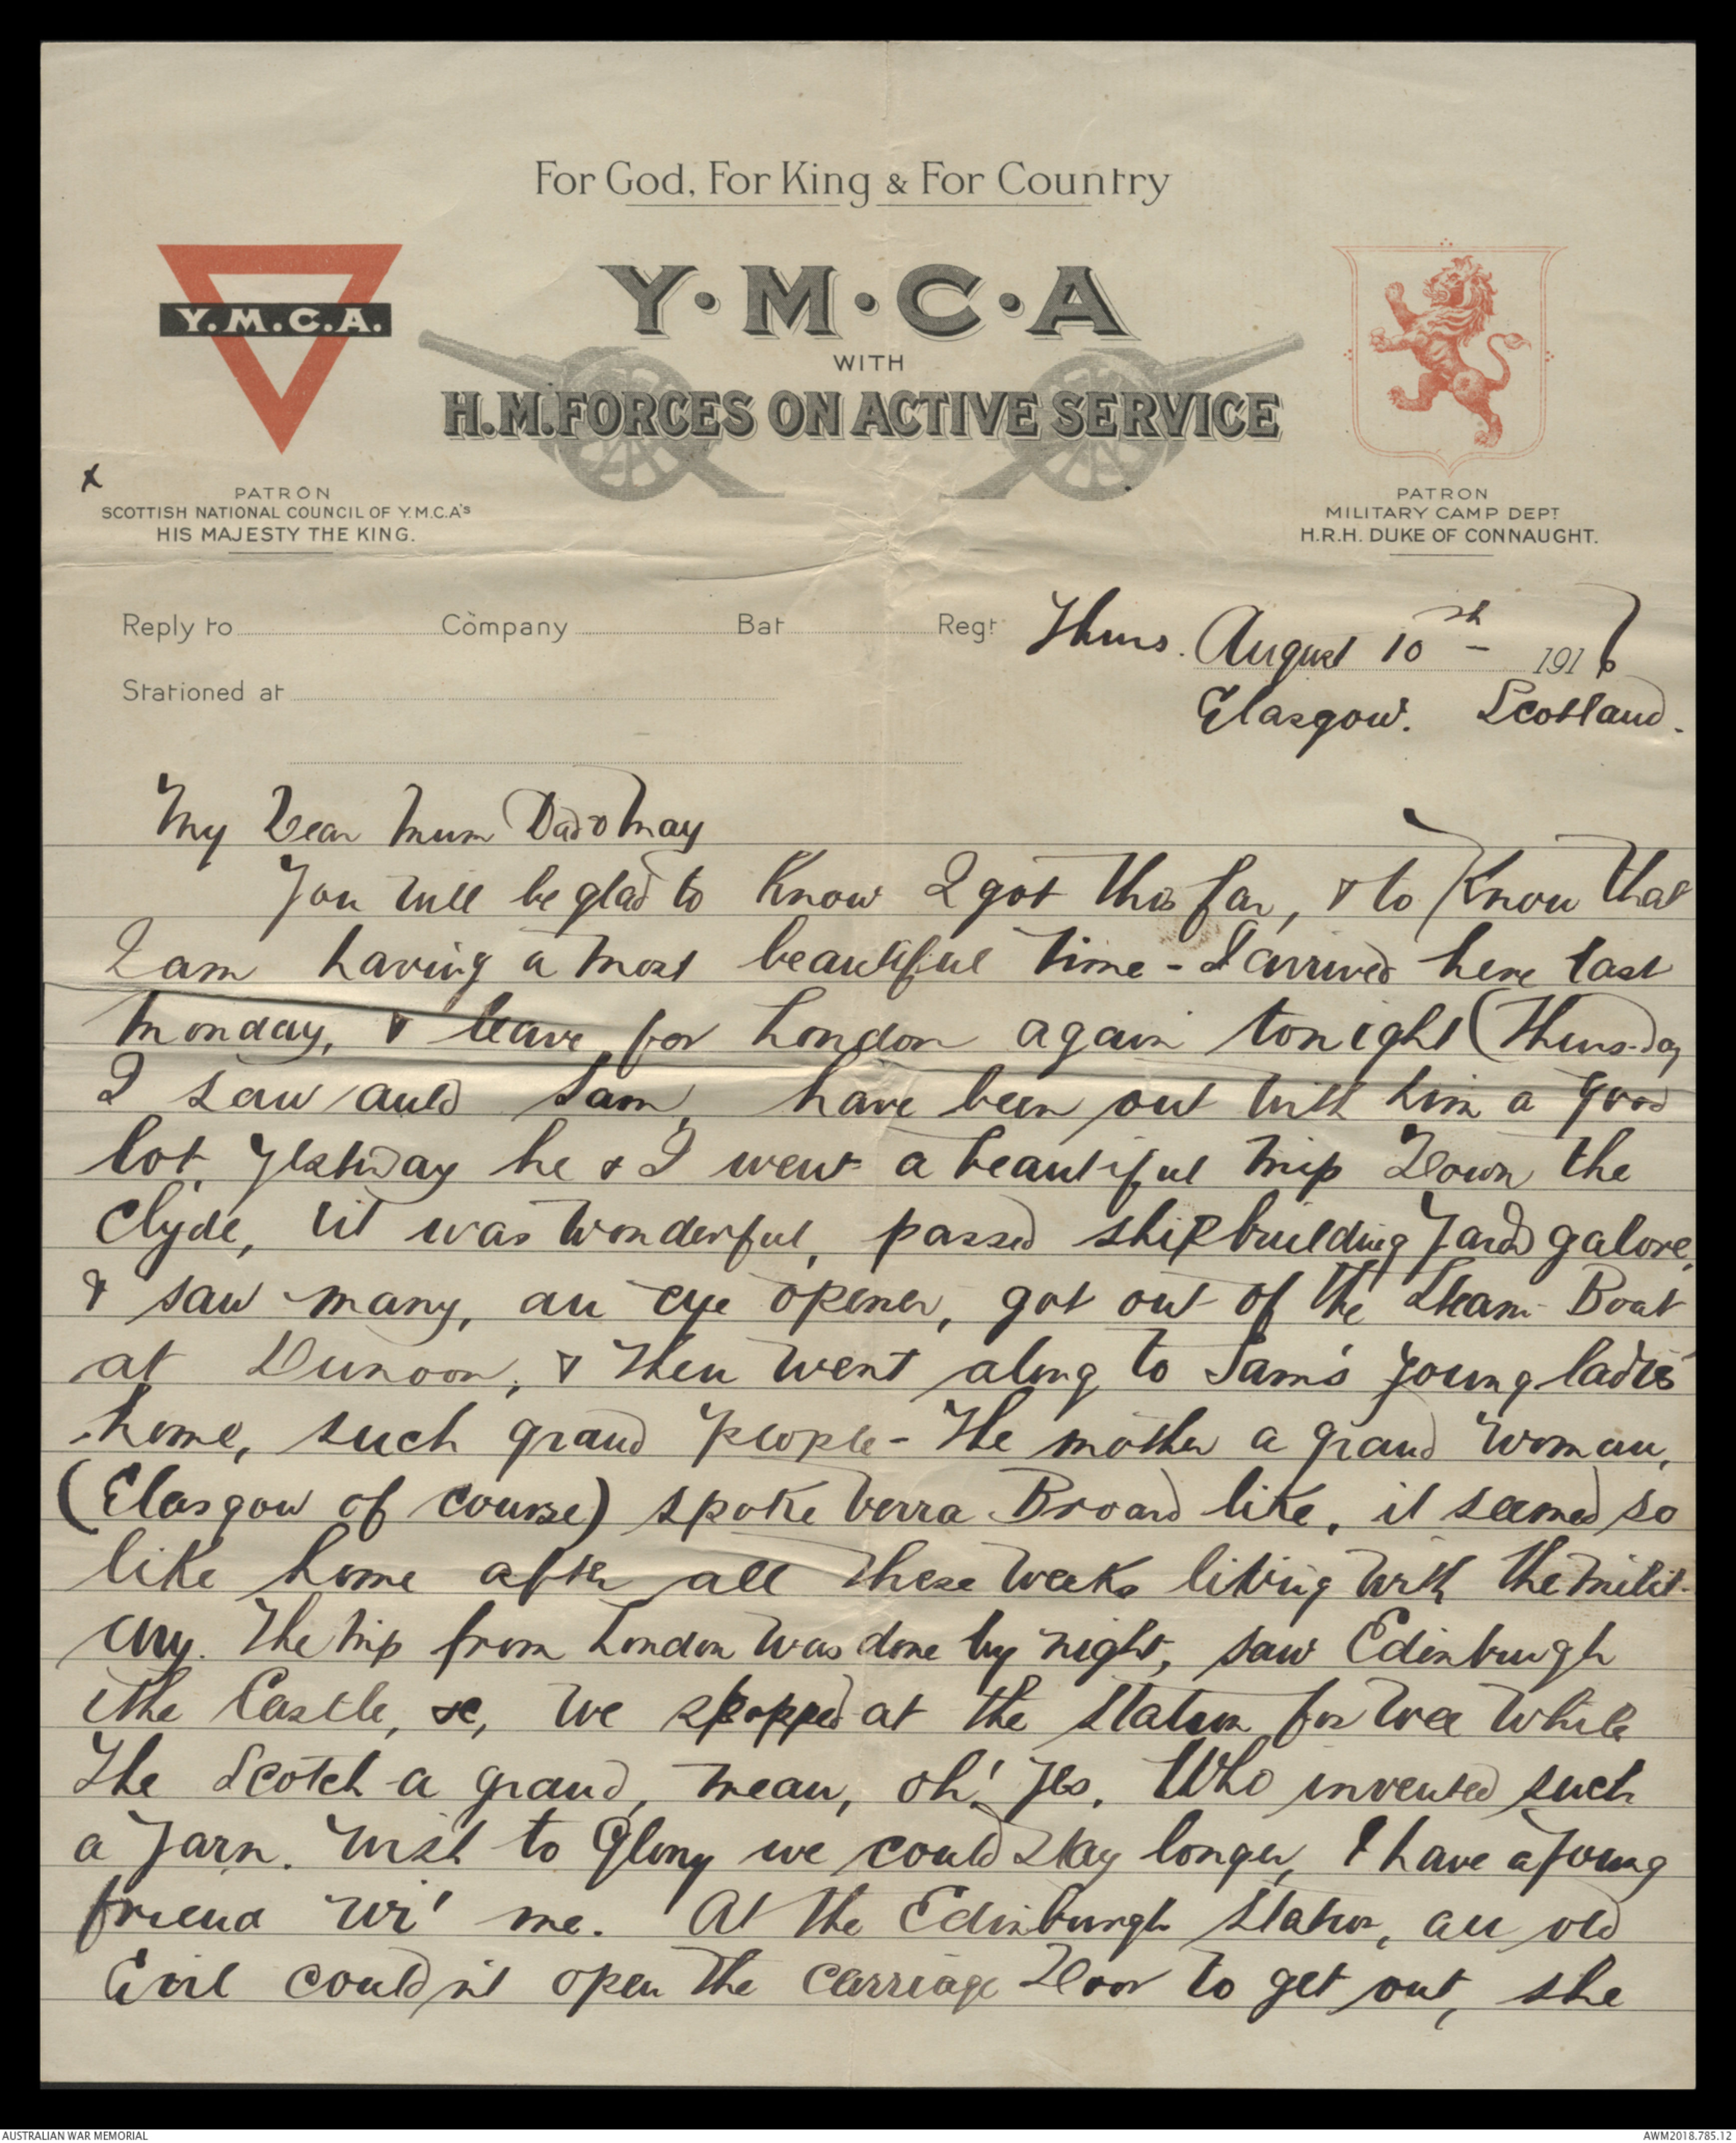 For God, For King & For Country
Y.M.C.A.
Y·M·C·A
WITH
H.M. FORCES ON ACTIVE SERVICE
x
PATRON
SCOTTISH NATIONAL COUNCIL OF Y.M.C.A's
HIS MAJESTY THE KING.
PATRON
MILITARY CAMP DEPT
H.R.H. DUKE OF CONNAUGHT.
Reply to Company Bat Regt Thurs. August 10th - 1916
Stationed at
Glasgow. Scotland.
My Dear Mum Dad & May
You will be glad to know I got this far, & to know that
I am having a most beautiful time - I arrived here last
Monday, & leave for London again tonight (Thursday
I saw auld Sam, have been out with him a good
lot, yesterday he & I went a beautiful trip down the
Clyde, it was wonderful, passed shipbuilding yards galore,
& saw many, an eye opener, got out of the Steam Boat
at Dunoon, & then went along to Sam's young ladies
home, such grand people - The mother a grand woman,
(Glasgow of course) spoke verra Broard like, it seemed so
like home after all these weeks living with the milit-
ary. The trip from London was done by night, saw Edinburgh
the Castle, &c, we stopped at the station for wee while
The Scotch a grand, mean, oh! yes. Who invented such
a yarn. Wish to Glory we could stay longer, I have a young
friend wi' me. At the Edinburgh station, an old
Girl couldn't open the carriage door to get out, she
AUSTRALIAN WAR MEMORIAL
AWM2018.785.12